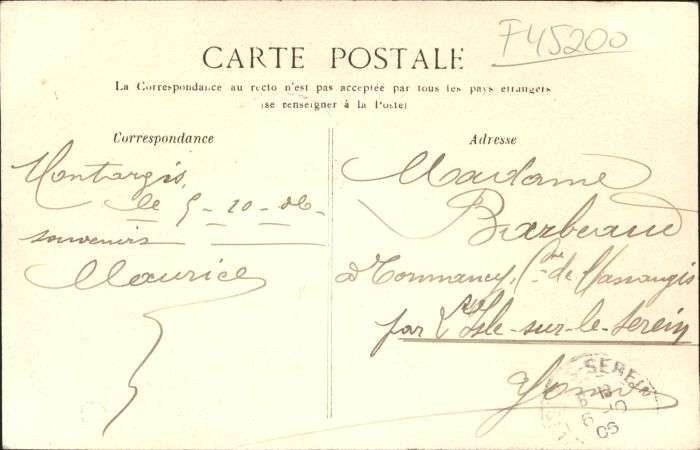 F45200
CARTE POSTALE
La Correspondance au recto n'est pas acceptée par tous les pays étrangers
(se renseigner à la Poste)
Correspondance
Montargis,
le 5-10-06
souvenirs
Maurice
Adresse
Madame
Barbeaud
à Tormancy, Cne de Massangis
par l'Isle-sur-le-Serein
Yonne
SEREIN
06